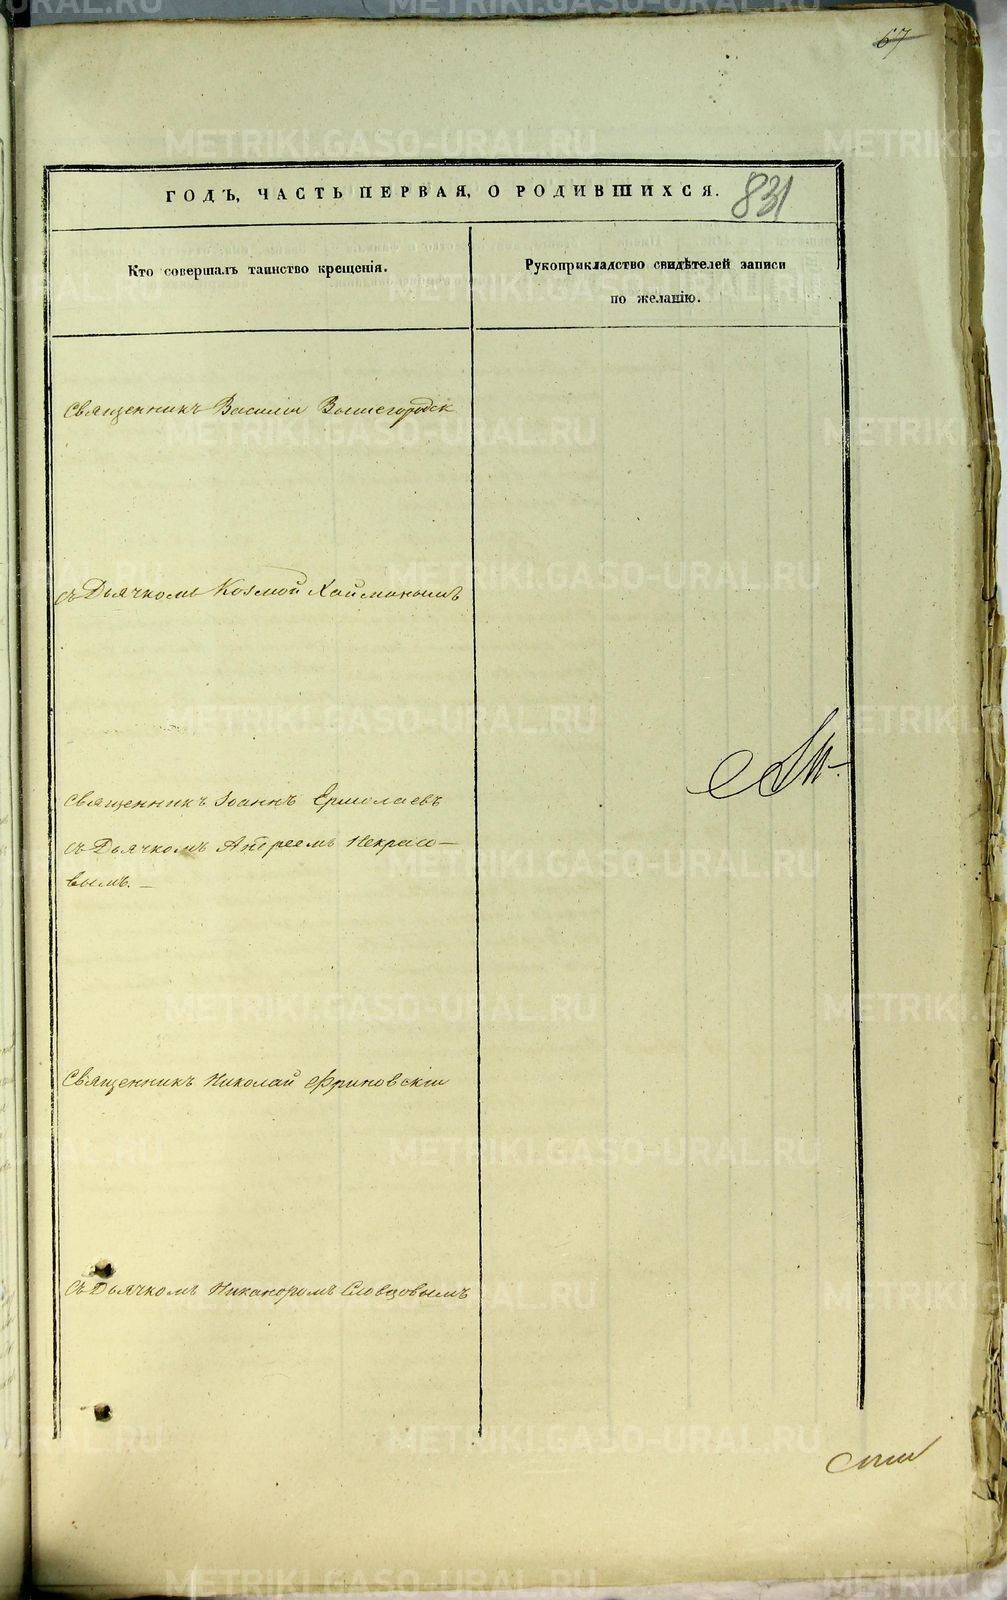 67
ГОДЪ, ЧАСТЬ ПЕРВАЯ, О РОДИВШИХСЯ.
831
Кто совершалъ таинство крещенія.
Рукоприкладство свидѣтелей записи
по желанію.
Священникъ Василій Вышегородск
съ Дьячкомъ Козмой Хаймановымъ
Священникъ Іоаннъ Ермолаевъ
съ Дьячкомъ Андреемъ Некрасо-
вымъ.—
Священникъ Николай Фриновскій
Съ Дьячкомъ Никаноромъ Словцовымъ
METRIKI.GASO-URAL.RU